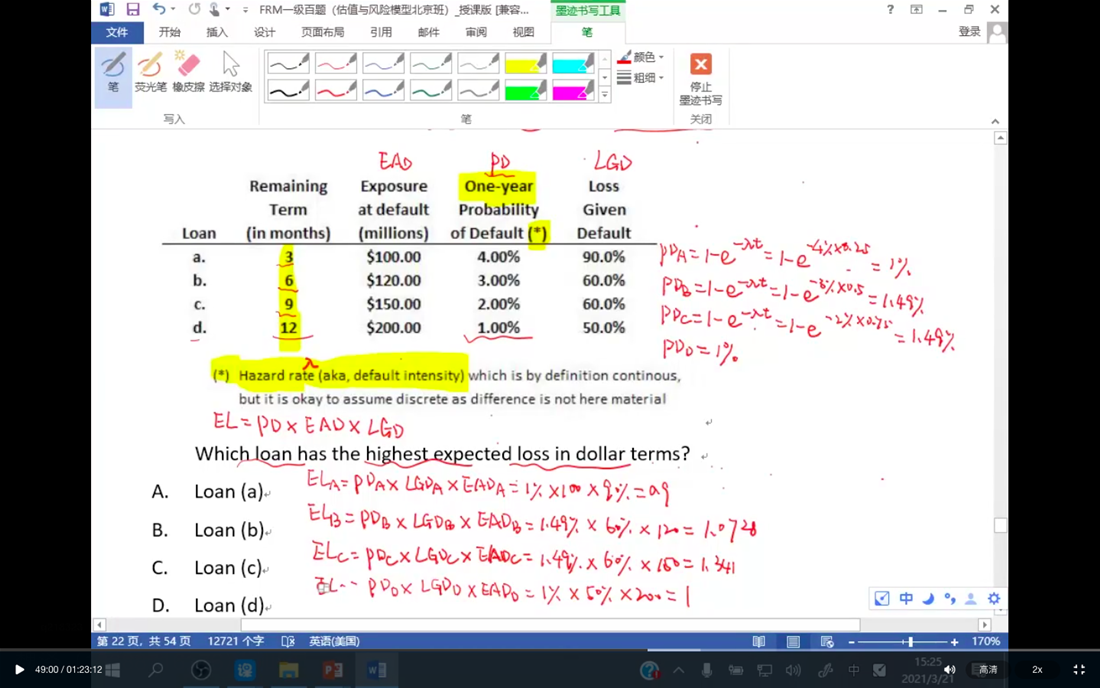 FRM一级百题（估值与风险模型北京班）_授课版 [兼容...
墨迹书写工具
文件 开始 插入 设计 页面布局 引用 邮件 审阅 视图 笔 登录
笔 荧光笔 橡皮擦 选择对象
颜色
粗细
停止
墨迹书写
写入 笔 关闭
EAD PD LGD
Remaining Exposure One-year Loss
Term at default Probability Given
Loan (in months) (millions) of Default (*) Default
a. 3 $100.00 4.00% 90.0%
b. 6 $120.00 3.00% 60.0%
c. 9 $150.00 2.00% 60.0%
d. 12 $200.00 1.00% 50.0%
PDA=1-e^-λt=1-e^-4%×0.25=1%
PDB=1-e^-λt=1-e^-3%×0.5=1.49%
PDC=1-e^-λt=1-e^-2%×0.75=1.49%
PDD=1%
λ
(*) Hazard rate (aka, default intensity) which is by definition continous,
but it is okay to assume discrete as difference is not here material
EL=PD×EAD×LGD
Which loan has the highest expected loss in dollar terms?
A. Loan (a)
ELA=PDA×LGDA×EADA=1%×100×90%=0.9
B. Loan (b)
ELB=PDB×LGDB×EADB=1.49%×60%×120=1.0728
C. Loan (c)
ELC=PDC×LGDC×EADC=1.49%×60%×150=1.341
D. Loan (d)
PDD×LGDD×EADD=1%×50%×200=1
中
第 22 页，共 54 页 12721 个字 英语(美国) 170%
49:00 / 01:23:12
中
15:25
2021/3/21
高清 2x